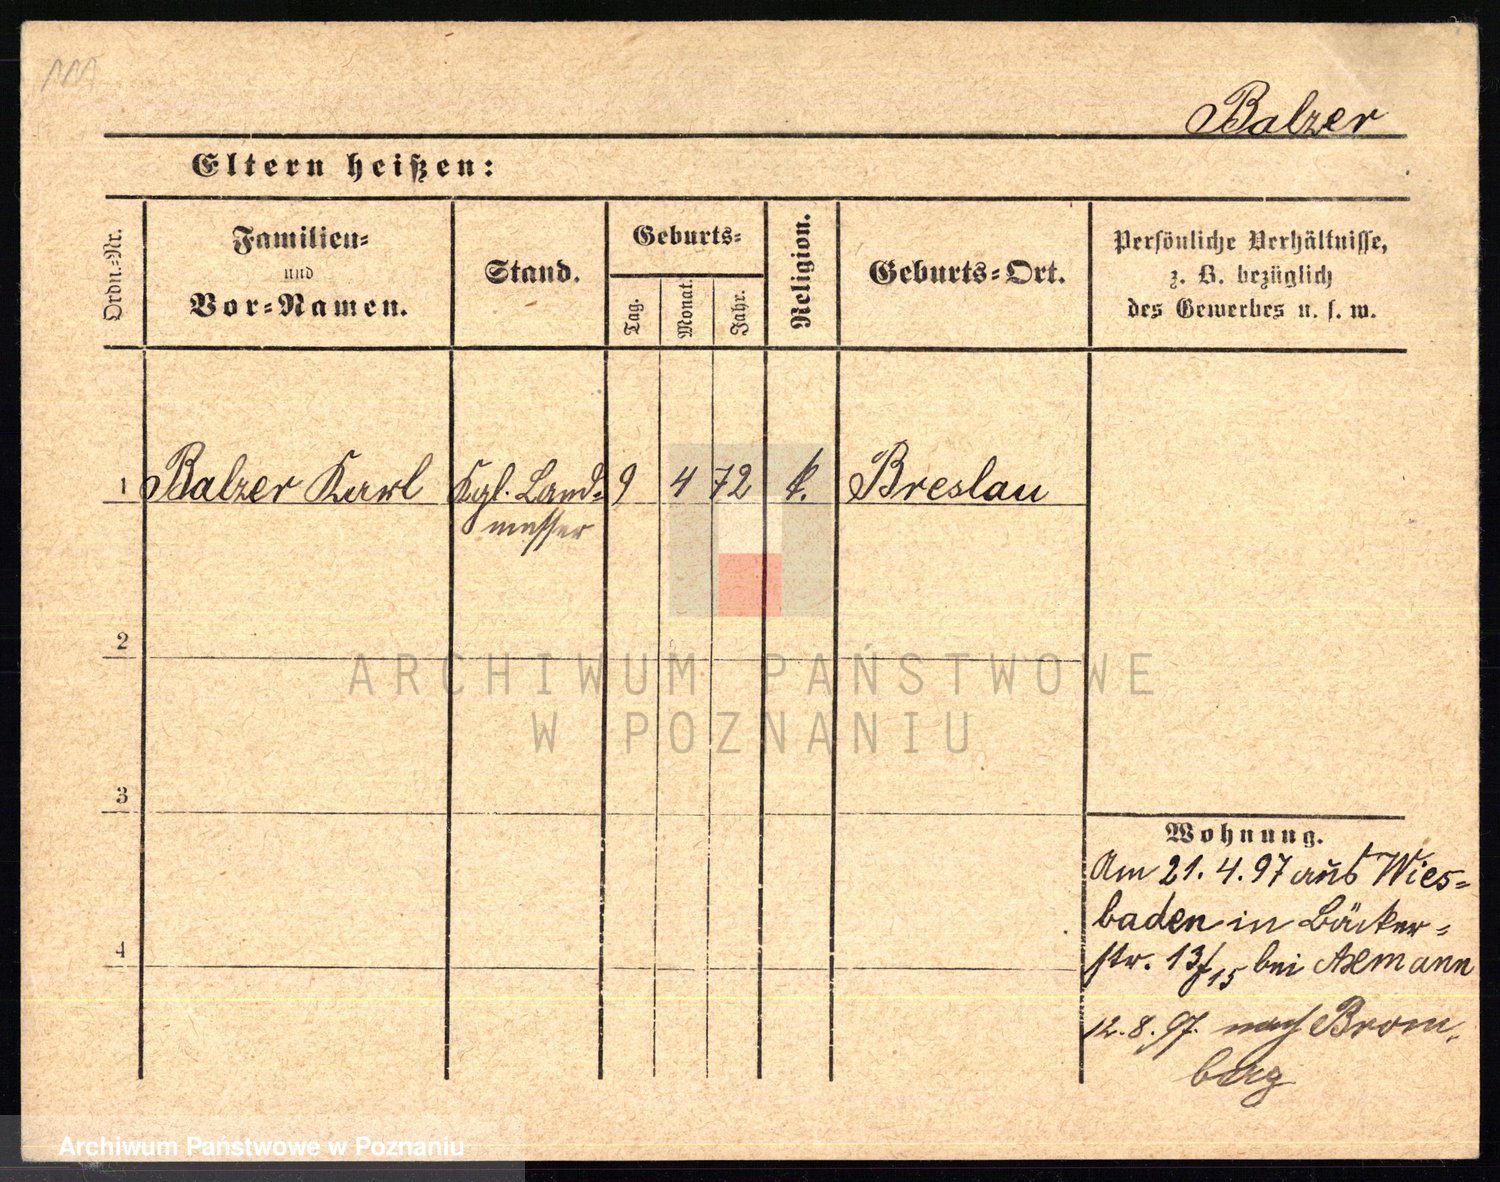 Balzer
Eltern heißen:
Ordn.-Nr.
Familien-
und
Vor-Namen.
Stand.
Geburts-
Tag.
Monat.
Jahr.
Religion.
Geburts-Ort.
Persönliche Verhältnisse,
z. B. bezüglich
des Gewerbes u. s. w.
1 Balzer Karl Kgl. Land- 9 4 72 k. Breslau
messer
2
3
4
ARCHIWUM PAŃSTWOWE
W POZNANIU
Wohnung.
Am 21. 4. 97 aus Wies-
baden in Bäcker-
str. 13/15 bei Axemann
12. 8. 97. nach Brom-
berg
Archiwum Państwowe w Poznaniu